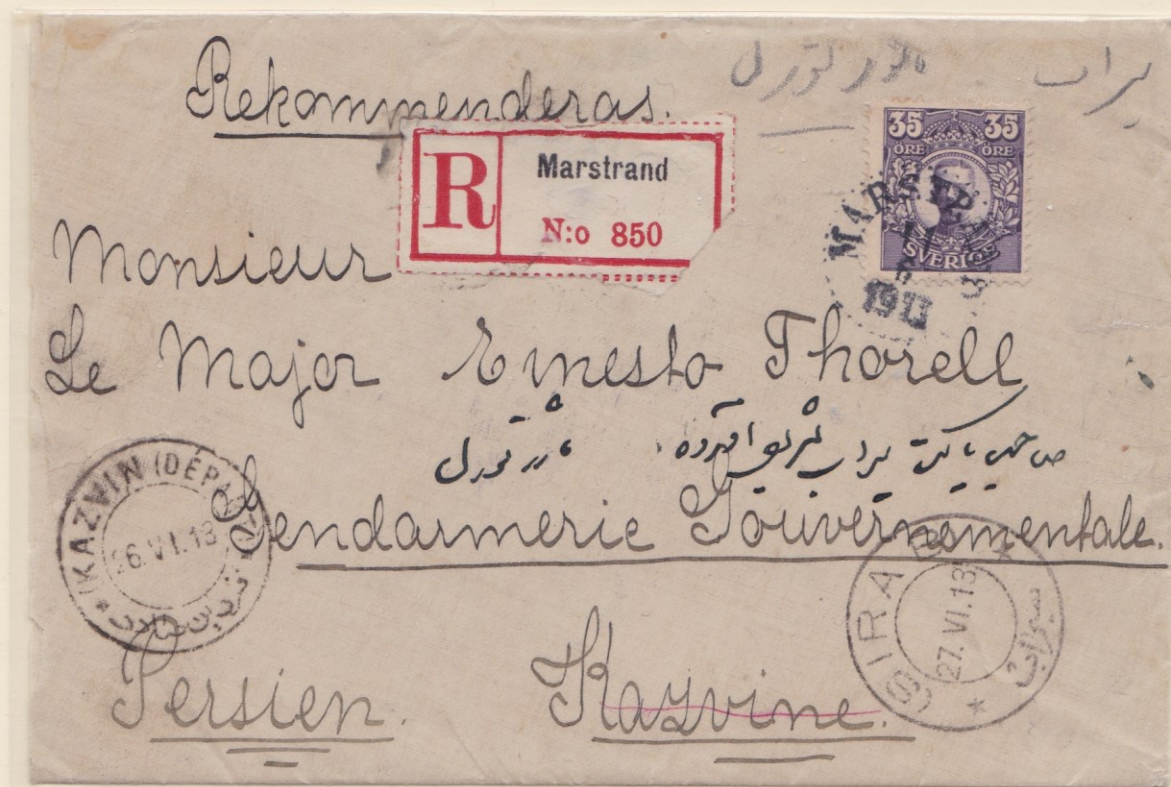 Rekommenderas.
سراب
R Marstrand
N:o 850
35 35
ÖRE ÖRE
SVERIGE
MARSTRAND
11
6
1913
Monsieur
Le Major Ernesto Thorell
صاحب پاکت
Gendarmerie Gouvernementale.
KAZVIN (DÉPART)
26.VI.13
SIRAB
27.VI.13
Persien. Kazvine.